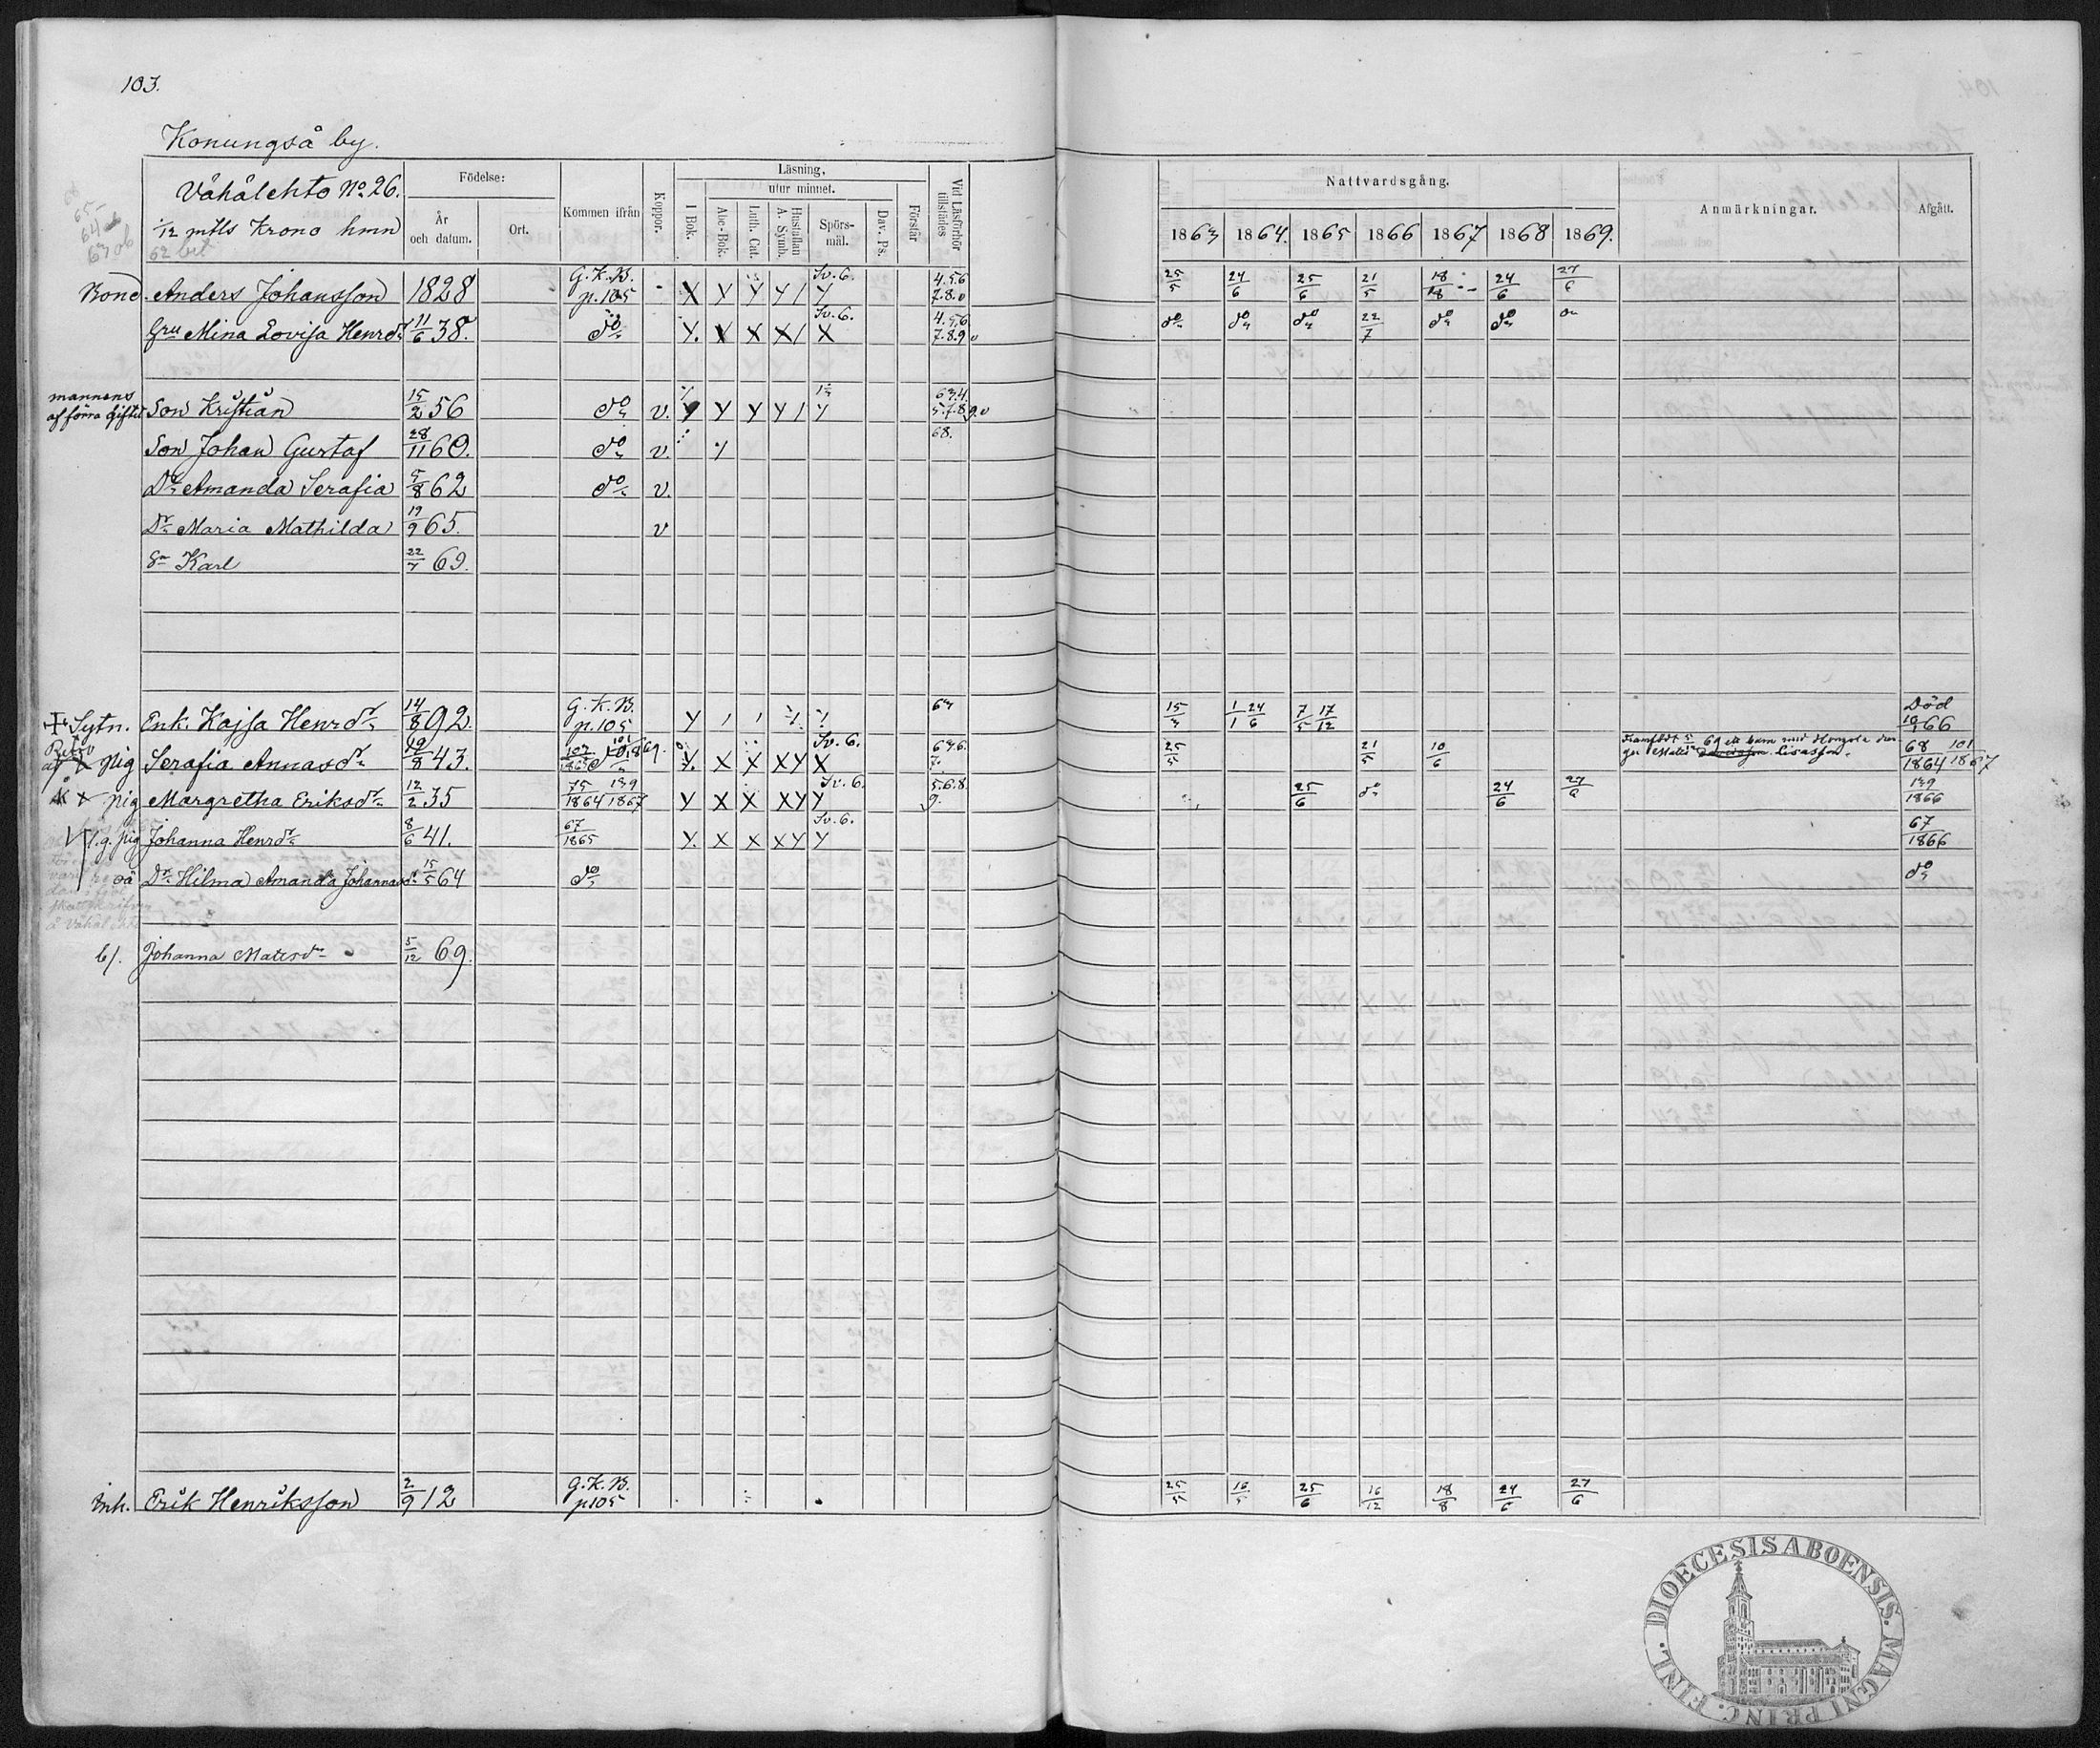 103.
Konungså by.
Vähälehto No 26.
1/12 mtls Krono hmn
Födelse:
År och datum.
Ort.
Kommen ifrån
Koppor.
Läsning,
utur minnet.
I Bok.
Abc-Bok.
Luth. Cat.
Hustaflan A. Symb.
Spörsmål.
Dav. Ps.
Förstår
Vid Läsförhör tillstädes
Nattvardsgång.
1863 1864. 1865 1866 1867 1868 1869.
Anmärkningar.
Afgått.
Bond. Anders Johansson 1828 G.K.B. p.105 X Y Y Y / Y Sv.6. 4.5.6 7.8.0 25/5 24/6 25/6 21/5 18/8 24/6 27/6
Hru Mina Lovisa Henrdr 11/6 38. do Y. X X X / X Sv.6. 4.5.6 7.8.9 do do do 22/7 do do
mannens af förra giftet Son Kristian 15/2 56 do v. Y Y Y Y / Y 63.4. 5.7.8.9.
Son Johan Gustaf 28/11 60. do v. 68.
Dr Amanda Serafia 5/8 62 do v.
Dr Maria Mathilda 19/9 65. v
Sn Karl 22/7 69.
Sytn. Enk. Kajsa Henrdr 14/8 92. G.K.B. p.105 Y 63 15/3 1/1 24/6 7/5 17/12 Död 10/1 66
pig Serafia Annasdr 19/8 43. Y. X X X Y X Sv.6. 63.6. 7. 25/5 21/5 10/6 Framfödt 5/12 69 ett barn med Hongola Matts Lisasson. 68/1864 101/1867
pig Margretha Eriksdr 12/2 35 75/1864 139/1867 Y X X X Y Y Sv.6. 5.6.8. 9. 25/6 do 24/6 27/6 139/1866
pig Johanna Henrdr 8/6 41. 67/1865 Y. X X X Y Y Sv.6. 67/1866
oä Dr Hilma Amanda Johannasdr 15/5 64 do do
b/. Johanna Matisdr 5/12 69.
Inh. Erik Henriksson 2/9 12 G.K.B. p105 25/5 16/5 25/6 16/12 18/8 24/6 27/6
DIOECESIS ABOENSIS. MAGNI PRINC. FINL.